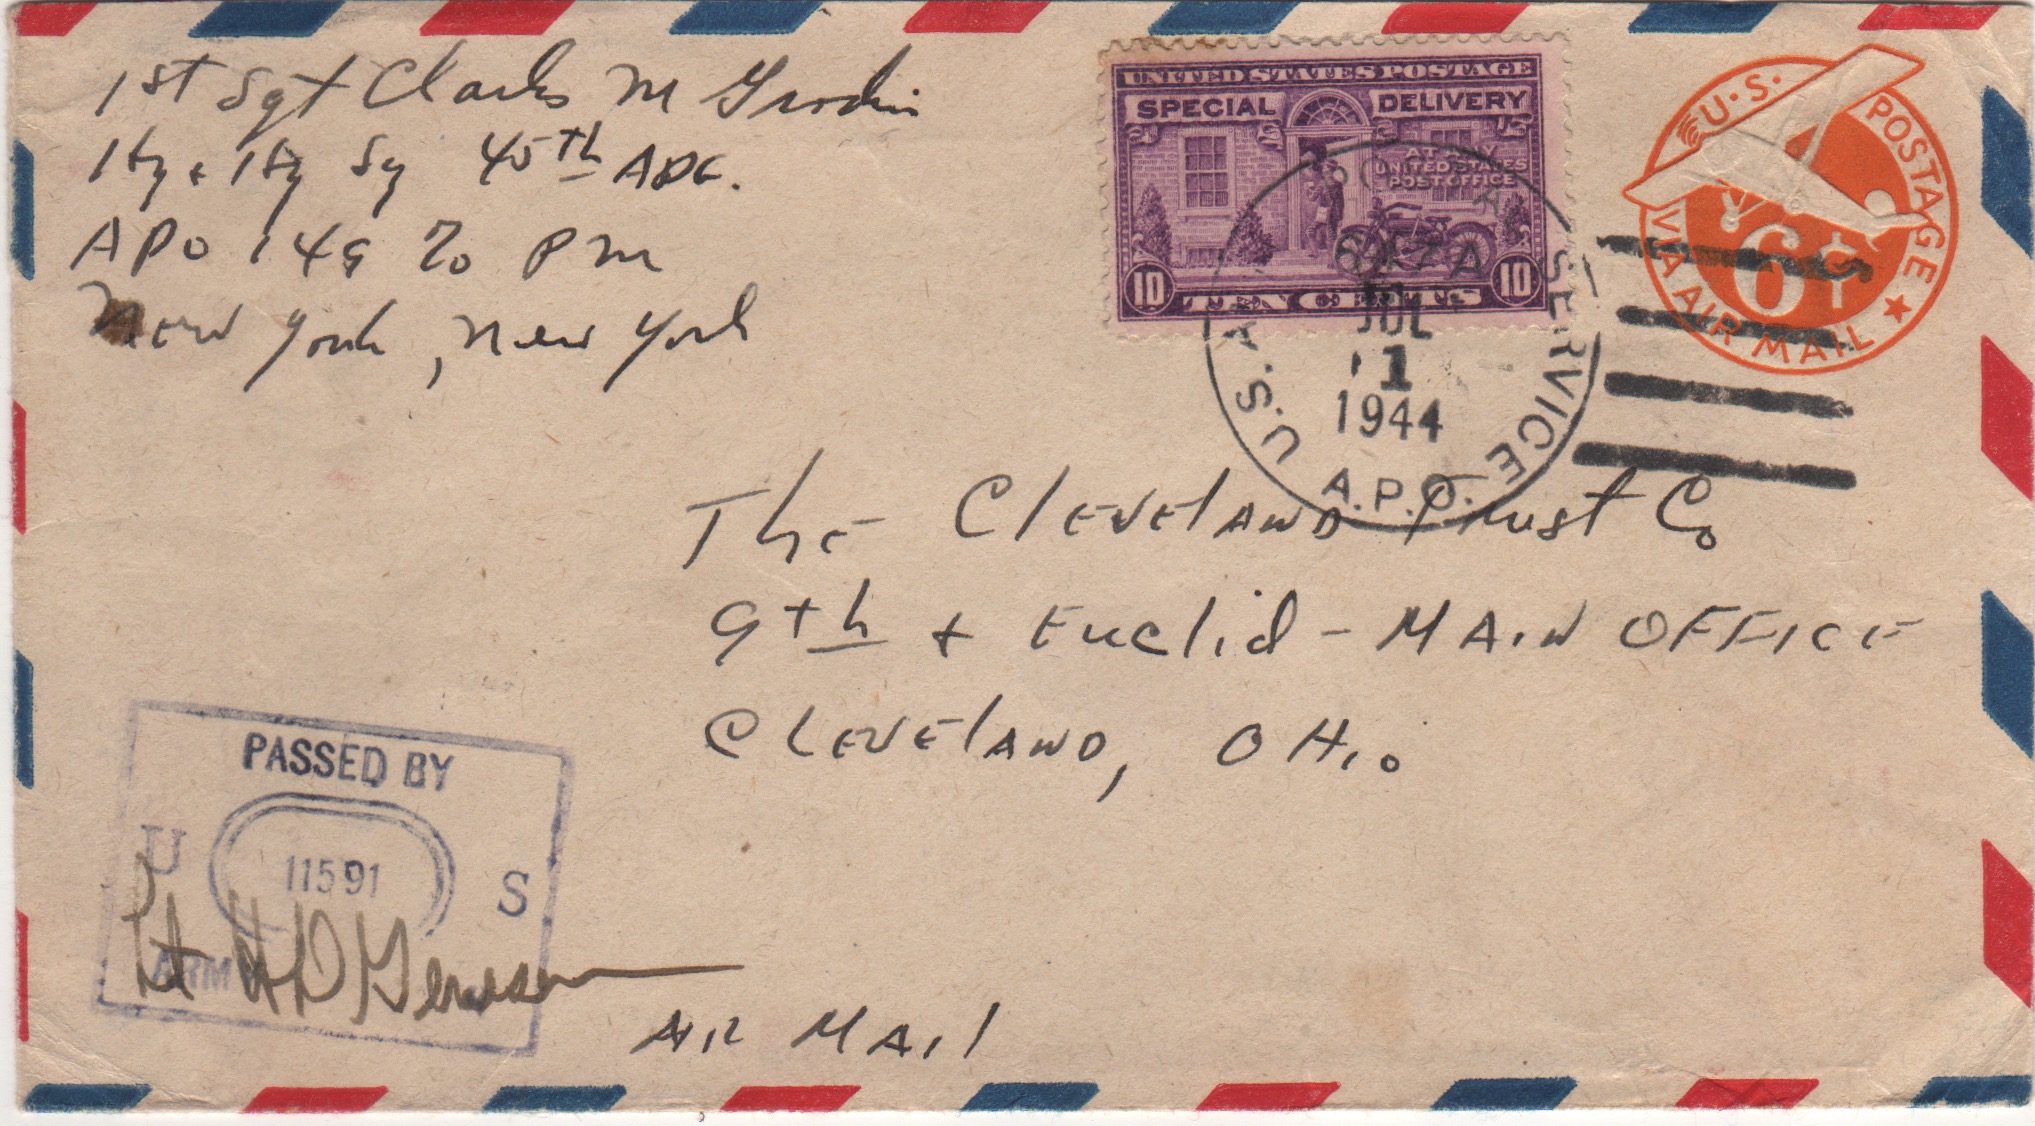 1st Sgt Charles M
Hq & Hq Sq 45th ADG.
APO 149 % PM
New York, New York
UNITED STATES POSTAGE
SPECIAL DELIVERY
AT ANY
UNITED STATES
POST OFFICE
10 TEN CENTS 10
U.S. POSTAGE
6¢
VIA AIR MAIL
U.S. A SERVICE
JUL
1
1944
A.P.O.
The Cleveland Trust Co
9th & Euclid - MAIN OFFICE
Cleveland, OHio
PASSED BY
U 11591 S
ARM
Lt H D
AIR MAil